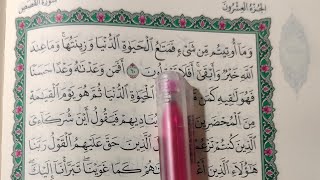 الجزء العشرون سورة القصص
وَمَآ أُوتِيتُم مِّن شَىْءٍ فَمَتَٰعُ ٱلْحَيَوٰةِ ٱلدُّنْيَا وَزِينَتُهَا ۚ وَمَا عِندَ
ٱللَّهِ خَيْرٌ وَأَبْقَىٰٓ ۚ أَفَلَا تَعْقِلُونَ ٦٠ أَفَمَن وَعَدْنَٰهُ وَعْدًا حَسَنًا
فَهُوَ لَٰقِيهِ كَمَن ٱلْحَيَوٰةِ ٱلدُّنْيَا ثُمَّ هُوَ يَوْمَ ٱلْقِيَٰمَةِ
مِنَ ٱلْمُحْضَرِينَ يُنَادِيهِمْ فَيَقُولُ أَيْنَ شُرَكَآءِىَ
ٱلَّذِينَ كُنتُمْ ٱلَّذِينَ حَقَّ عَلَيْهِمُ ٱلْقَوْلُ رَبَّنَا
هَٰٓؤُلَآءِ ٱلَّذِينَ كَمَا غَوَيْنَا ۖ تَبَرَّأْنَآ إِلَيْكَ ۖ